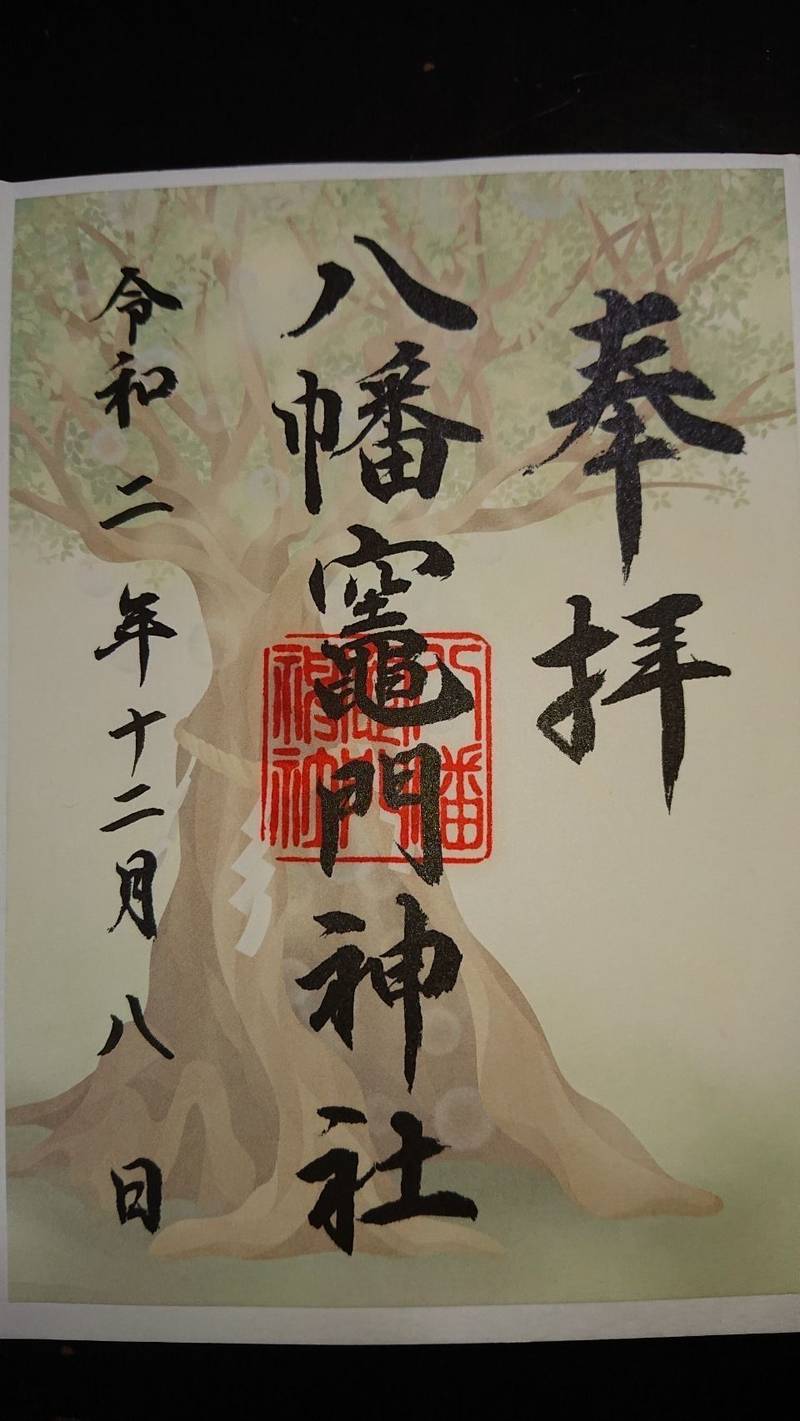 奉拝
八幡竈門神社
令和二年十二月八日
八幡竈門神社